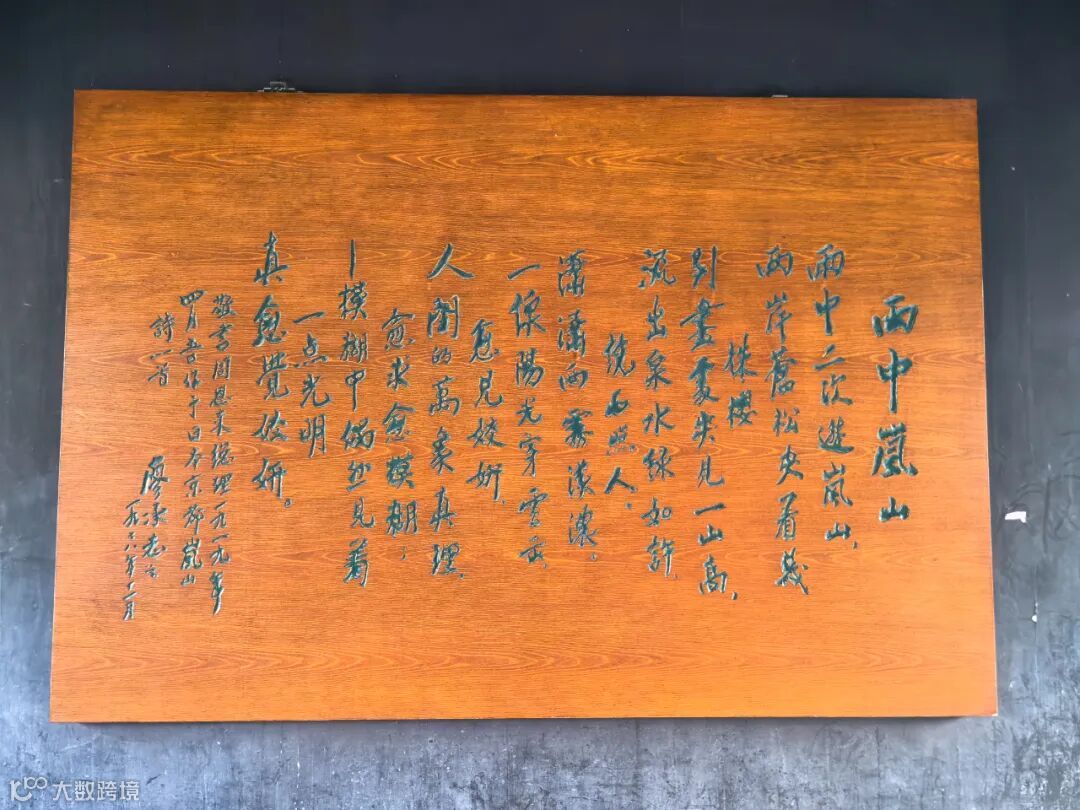 雨中嵐山
雨中二次遊嵐山，
两岸蒼松夾着幾
株櫻
到盡處突見一山高，
流出泉水绿如許，
繞石照人。
瀟瀟雨霧濛濃；
一線陽光穿雲出，
愈見姣妍。
人間的萬象真理，
愈求愈模糊；
—模糊中偶然見着
一点光明
真愈覺姣妍。
敬書周恩来總理一九一九年
四月五日作于日本京都嵐山
詩一首
廖承志
一九七八年十一月
大数跨境